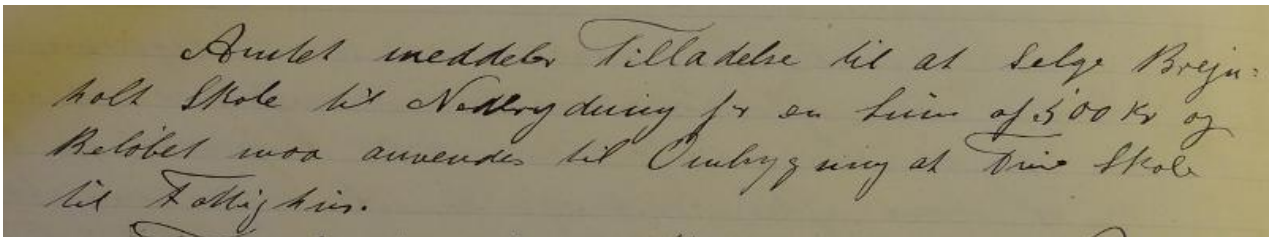 Amtet meddeler Tilladelse til at Sælge Brejn-
holt Skole til Nedrydning for en Sum af 500 Kr og
Beløbet maa anvendes til Ombygning at Skole
til Fattighus.